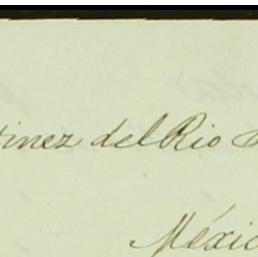 tinez del Rio
Méxic